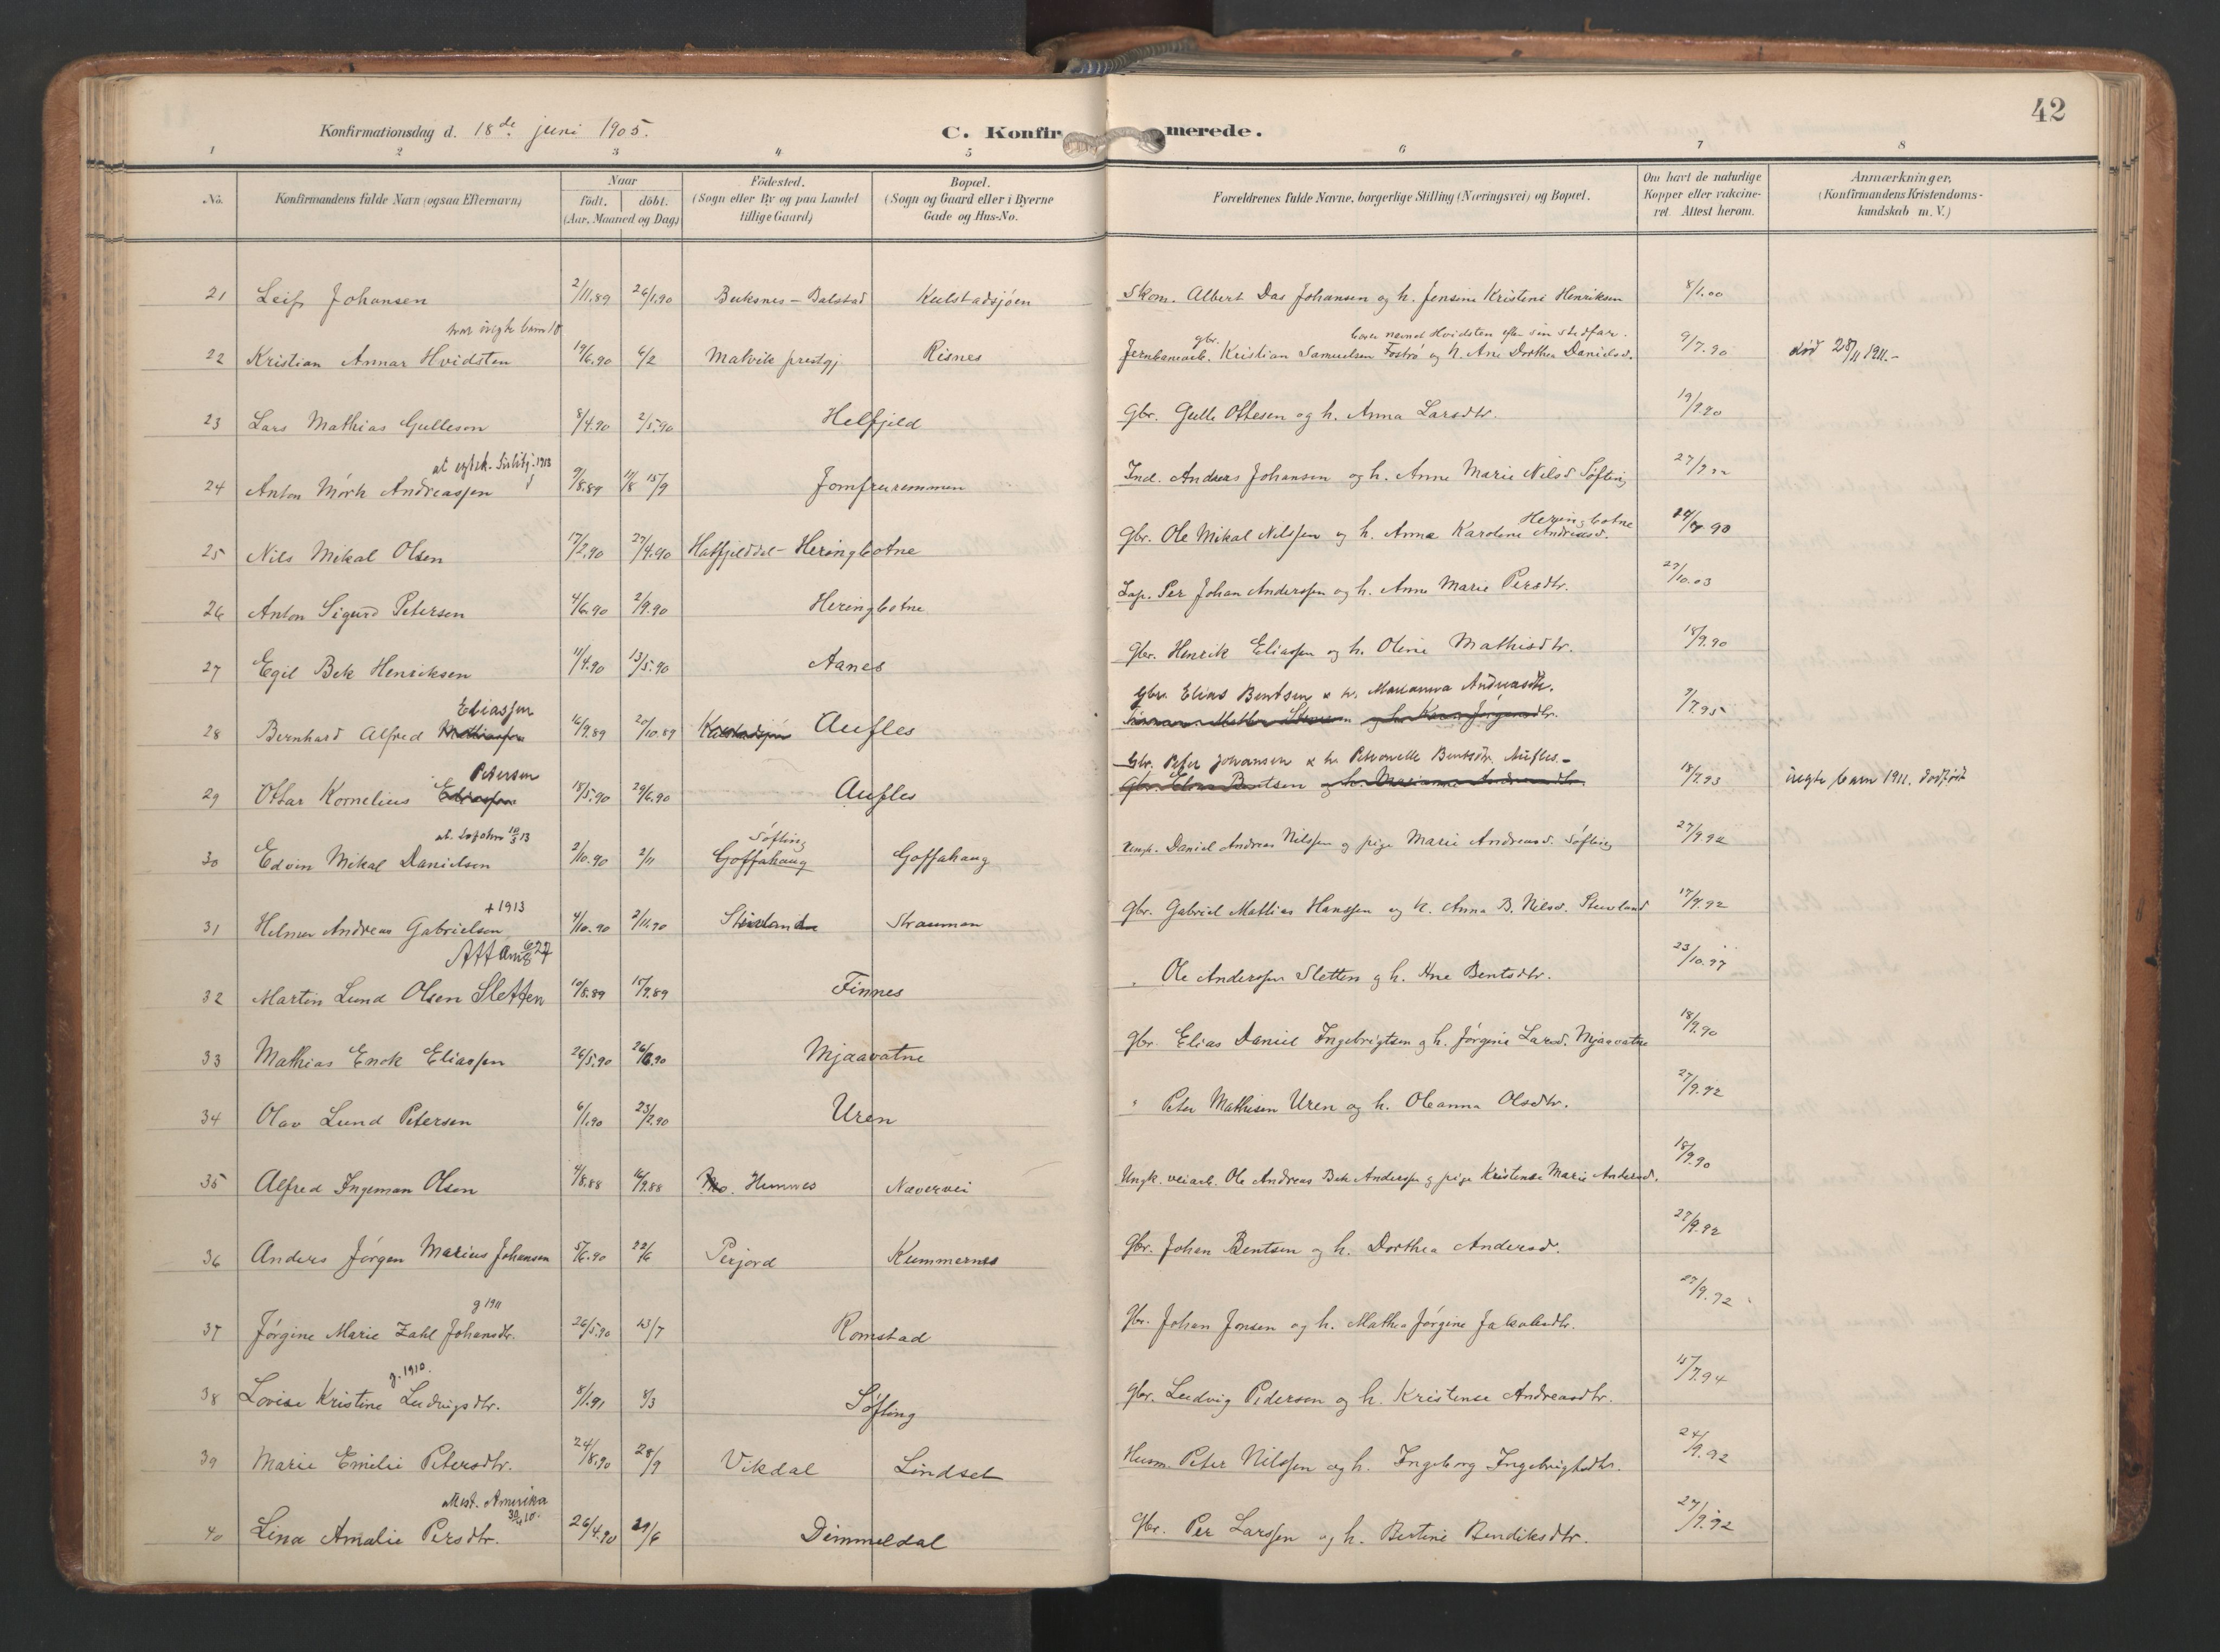 42
Konfirmationsdag d. 18de juni 1905. C. Konfirmerede.
1 2 3 4 5 6 7 8
No. Konfirmandens fulde Navn (ogsaa Efternavn) Naar födt. döbt. (Aar, Maaned og Dag) Födested. (Sogn eller By og paa Landet tillige Gaard) Bopæl. (Sogn og Gaard eller i Byerne Gade og Hus-No. Forældrenes fulde Navne, borgerlige Stilling (Næringsvei) og Bopæl. Om havt de naturlige Kopper eller vakcineret. Attest herom. Anmærkninger. (Konfirmandens Kristendomskundskab m. V.)
21 Leif Johansen 2/11.89 26/1.90 Buksnes - Balstad Kulstadsjøen Skom. Albert Das Johansen og h. Jensine Kristine Henriksen 8/1.00
gbr.
22 Kristian Annar Hvidsten 19/6.90 6/2 Prestgj. Risnes Jernbanearb. Kristian Samuelsen og h. Ane Dorthea Danielsd. 9/7.90 död 28/11 1911.-
23 Lars Mathias Gulleson 8/4.90 2/5.90 Helfjeld Gbr. Gulle Ottesen og h. Anna Larsdtr. 19/9.90
24 Anton Mörk Andreassen 9/8.89 15/9 Jomfruremmen Ind. Andreas Johansen og h. Anne Marie Nilsd. Søfting
Heringbotne
25 Nils Mikal Olsen 17/2.90 27/4.90 Hatfjelddal - Heringbotne Gbr. Ole Mikal Nilssen og h. Anna Karoline Andreasd.
26 Anton Sigurd Petersen 4/6.90 2/9.90 Heringbotne Lap. Per Johan Anderssen og h. Anne Marie Persdtr. 27/10.03
27 Egil Bek Henriksen 11/4.90 13/5.90 Aanes Gbr. Henrik Eliassen og h. Oline Mathisdtr. 18/9.90
Eliassen Gbr. Elias Bentsen & h. Marianna Andreasdtr.
28 Bernhard Alfred Mathiassen 16/9.89 20/10.89 Kulstadsjøen Aufles 9/7.95
Petersen Gbr. Peter Johansen & h. Petronelle Bentsdtr. Aufles.-
29 Ottar Kornelius Eliassen 18/5.90 29/6.90 Aufles Gbr. Elias Bentsen og h. Marianne Andreasdtr. 18/7.93 uegte barn 1911. dødfødt
Søfting
30 Edvin Mikal Danielsen 2/10.90 2/11 Goffahaug Goffahaug Ungk. Daniel Andreas Nilssen og pige Marie Andreasd. Søfting 27/9.92
+ 1913
31 Helmer Andreas Gabrielsen 4/10.90 2/11.90 Straumen Gbr. Gabriel Mathias Hanssen og h. Anna B. Nilsd. 17/9.92
32 Martin Lund Olsen Sletten 10/8.89 15/9.89 Finnes " Ole Anderssen Sletten og h. Ane Bentsdtr. 23/10.97
33 Mathias Enok Eliassen 26/5.90 26/6.90 Mjaavatne Gbr. Elias Daniel Ingebrigtsen og h. Jørgine Larsd. Mjaavatne 18/9.90
34 Olav Lund Petersen 6/1.90 23/2.90 Uren " Peter Mathisen Uren og h. Oleanna Olsdtr. 27/9.92
35 Alfred Ingeman Olsen 4/8.88 16/9.88 Hemnes Navervei Ungk. veiarb. Ole Andreas Bek Anderssen og pige Kristense Marie Andersd. 18/9.90
36 Anders Jørgen Marius Johansen 5/6.90 22/6 Perjord Kummernes Gbr. Johan Bentsen og h. Dorthea Andersd. 27/9.92
g 1911
37 Jørgine Marie Zahl Johansdtr. 26/5.90 13/7 Romstad Gbr. Johan Jonsen og h. Mathea Jørgine Jakobsdtr. 27/9.92
g. 1910.
38 Lovise Kristine Ludvigsdtr. 8/1.91 8/3 Søfting Gbr. Ludvig Pedersen og h. Kristense Andreasdtr. 15/7.94
39 Marie Emilie Petersdtr. 24/8.90 28/9 Vikdal Lindset Husm. Peter Nilssen og h. Ingeborg Ingebrigtsdtr. 24/9.92
attest. Amerika
40 Lina Amalie Persdtr. 26/4.90 29/6 Dimmeldal Gbr. Per Larssen og h. Bertine Bendiksdtr. 27/9.92